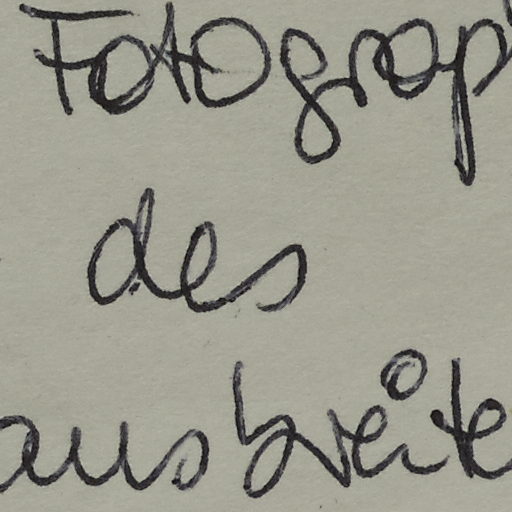 Fotograp
des
ausbreite